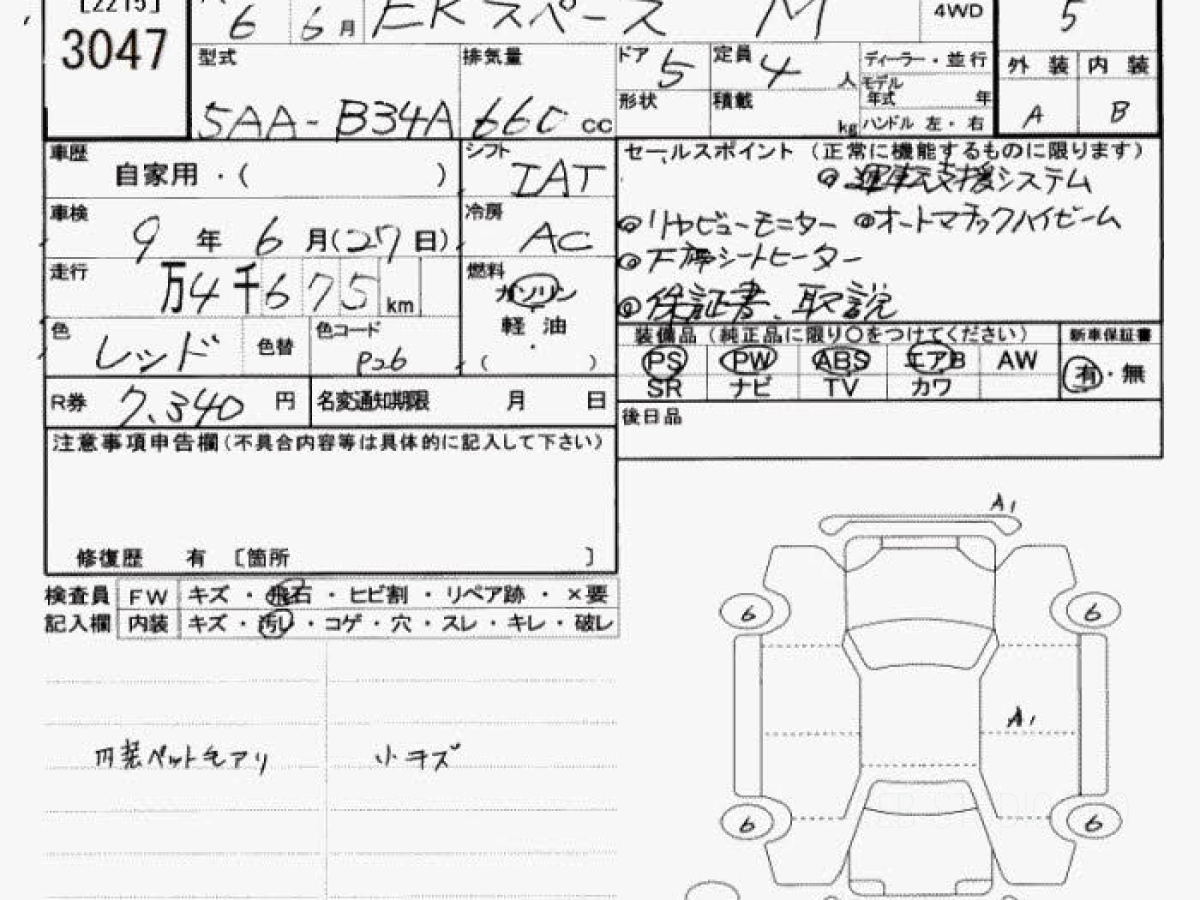 [2215]
3047
6 6月 EKスペース M 4WD 5
型式 5AA-B34A
排気量 660 cc
ドア 5
定員 4 人
形状 積載 kg
ディーラー・並行
モデル年式 年
ハンドル 左・右
外装 内装
A B
車歴 自家用・( )
シフト IAT
車検 9年6月(27日)
冷房 AC
走行 万4千675km
燃料 ガソリン
軽油
・
( )
色 レッド 色替 色コード P26
R券 7,340 円 名変通知期限 月 日
セールスポイント (正常に機能するものに限ります)
◎運転支援システム
◎リヤビューモニター ◎オートマチックハイビーム
◎シートヒーター
◎保証書、取説
装備品(純正品に限り○をつけてください) 新車保証書
PS PW ABS エアB AW 有・無
SR ナビ TV カワ
後日品
注意事項申告欄(不具合内容等は具体的に記入して下さい)
修復歴 有 [箇所 ]
検査員 FW キズ・飛石・ヒビ割・リペア跡・×要
記入欄 内装 キズ・汚レ・コゲ・穴・スレ・キレ・破レ
内装ペット毛アリ 小キズ
A1
6 6
A1
6 6